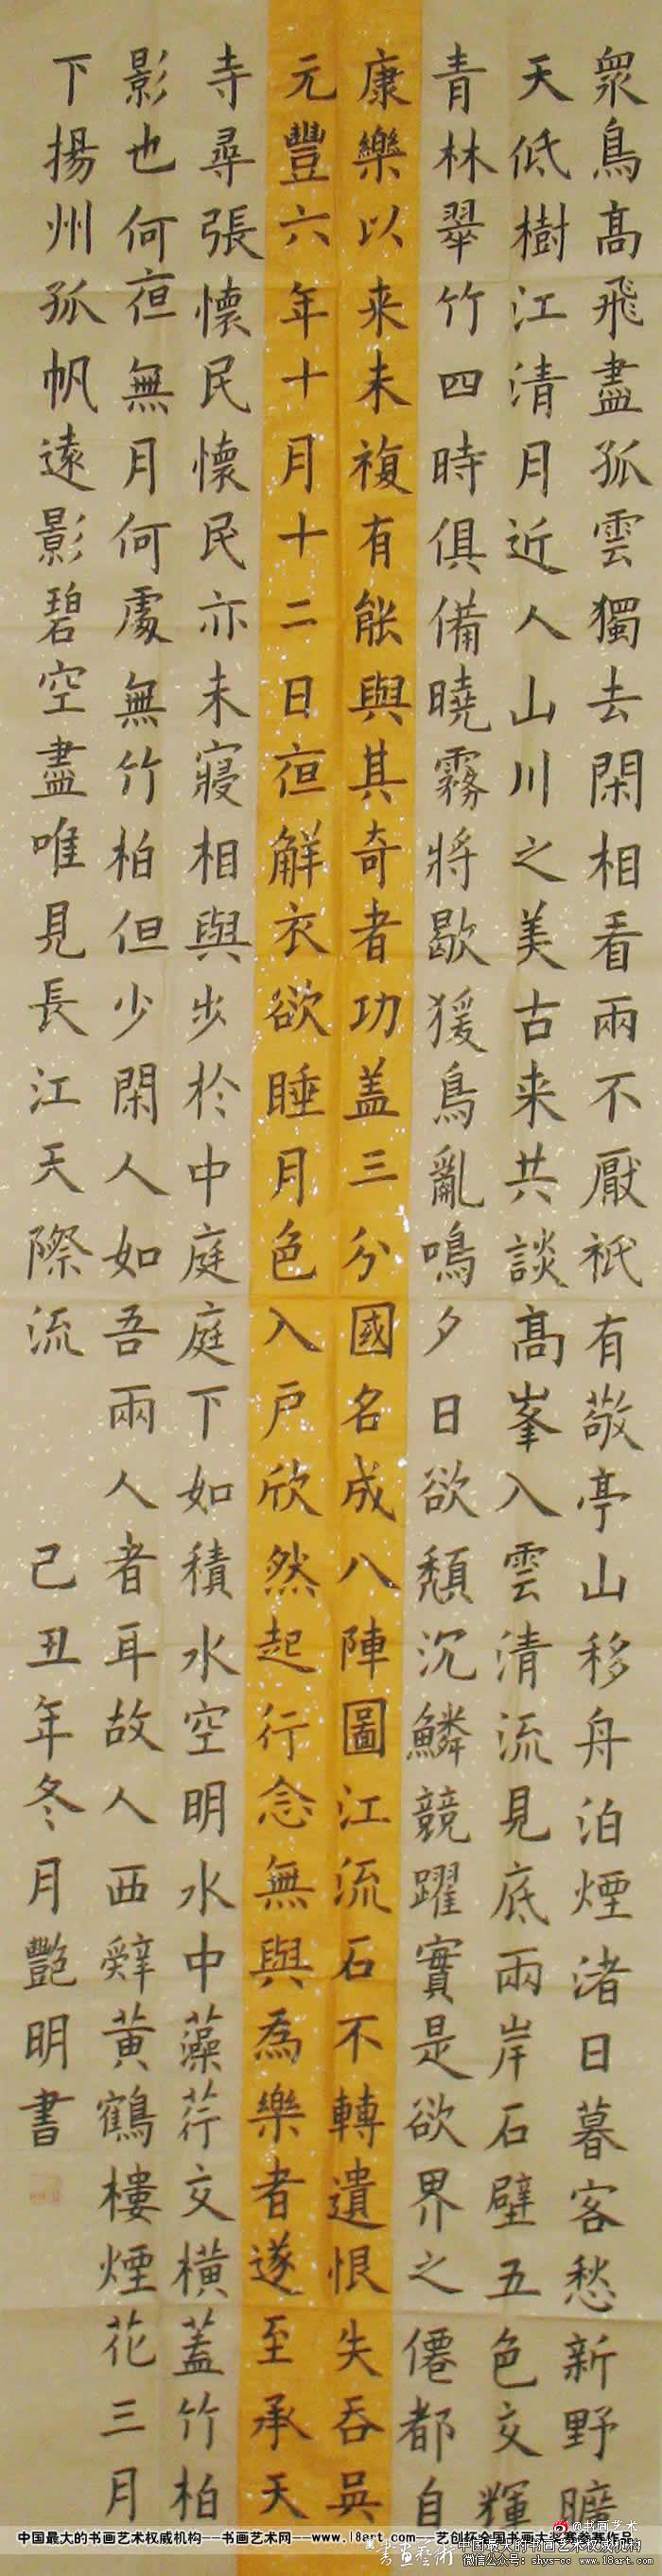 衆鳥高飛盡孤雲獨去閑相看兩不厭衹有敬亭山移舟泊煙渚日暮客愁新野曠
天低樹江清月近人山川之美古来共談高峯入雲清流見底兩岸石壁五色交輝
青林翠竹四時俱備曉霧將歇猨鳥亂鳴夕日欲頹沉鱗競躍實是欲界之僊都自
康樂以来未複有能與其奇者功盖三分國名成八陣圖江流石不轉遺恨失吞吳
元豐六年十月十二日夜解衣欲睡月色入戶欣然起行念無與為樂者遂至承天
寺尋張懷民懷民亦未寢相與步於中庭庭下如積水空明水中藻荇交橫蓋竹柏
影也何夜無月何處無竹柏但少閑人如吾兩人者耳故人西辭黃鶴樓煙花三月
下揚州孤帆遠影碧空盡唯見長江天際流 己丑年冬月艷明書
中国最大的书画艺术权威机构---书画艺术网---www.18art.com---艺创杯全国书画大奖赛参赛作品
@书画艺术
书画艺術
中国最大的书画艺术权威机构
微信公众号：shys-cc www.18art.com